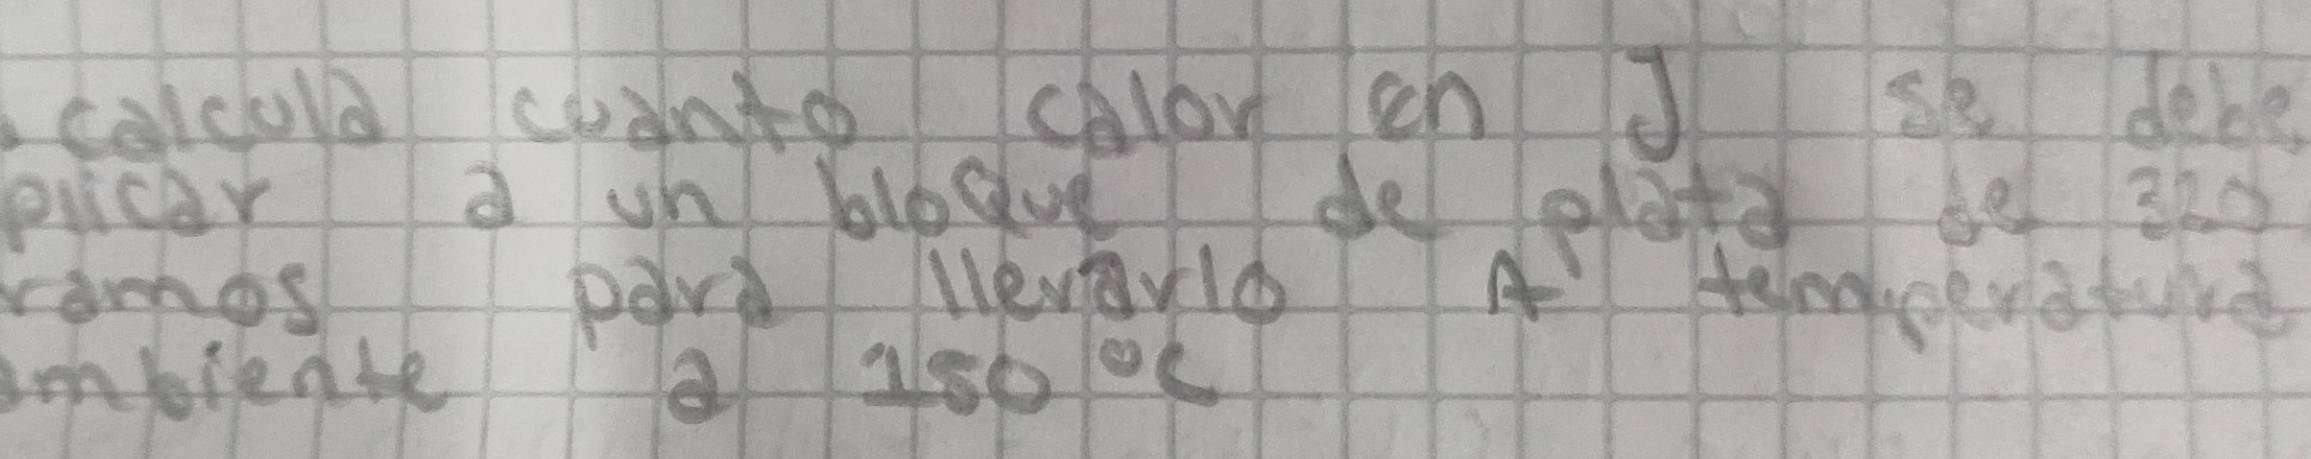 calcula cuanto calor en J se debe
plicar a un bloque de plata de 320
ramos para llevarlo A temperatura
ambiente a 150 °C